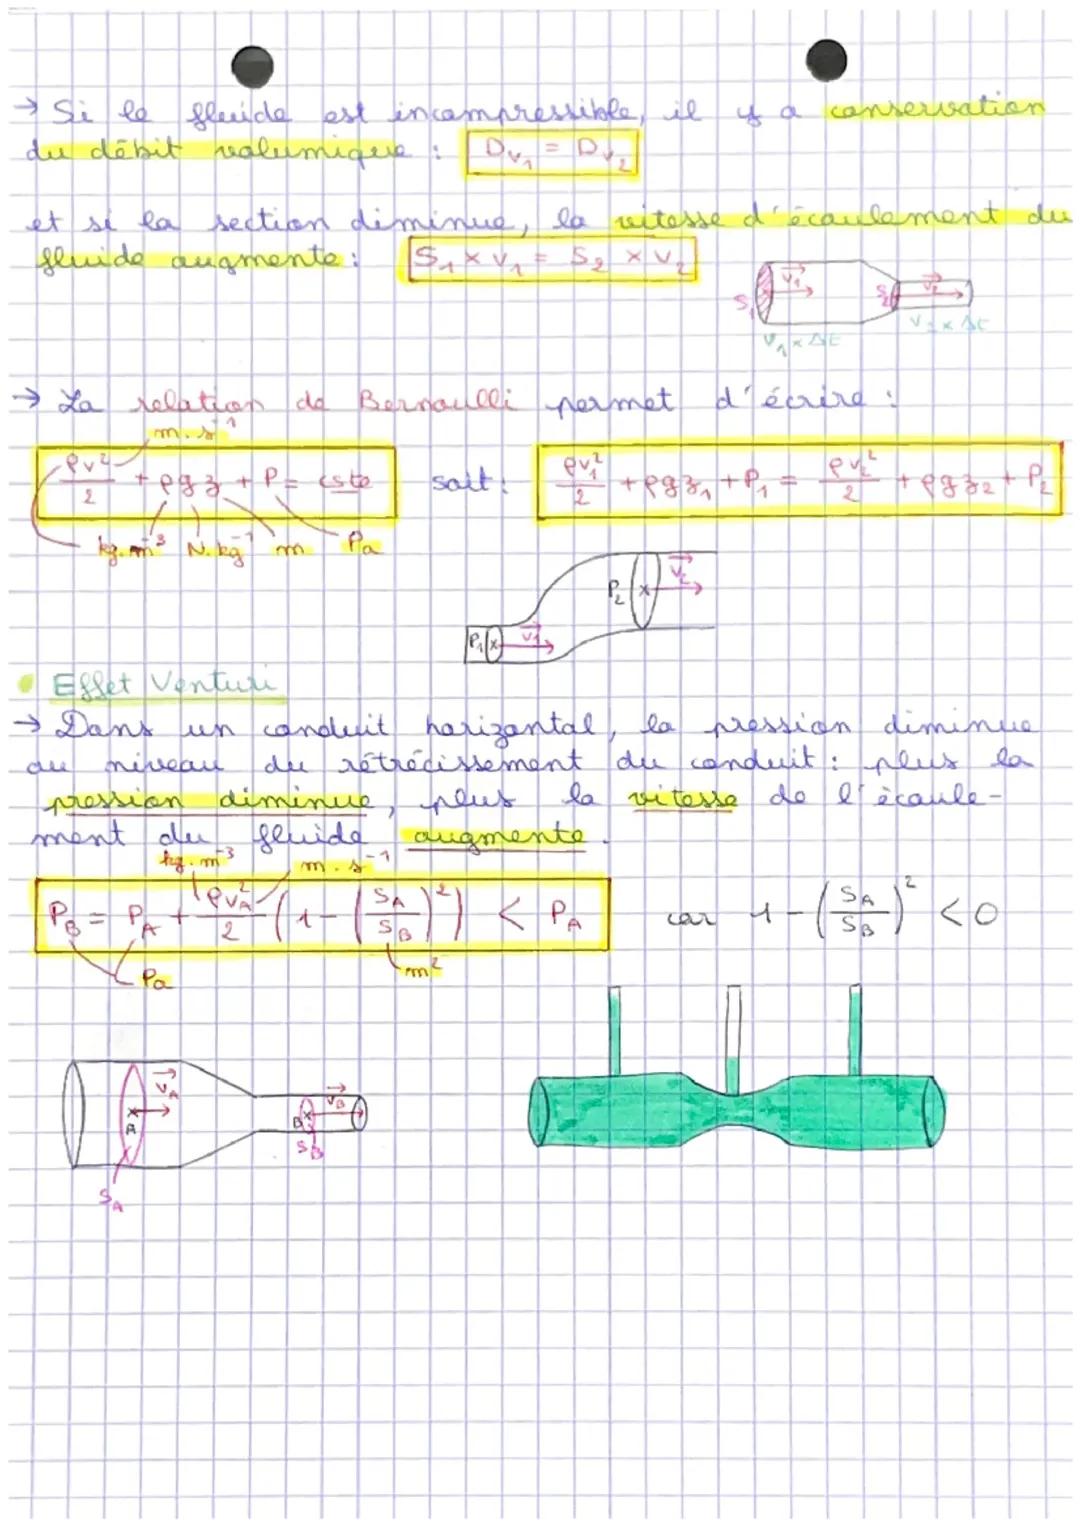 → Si le fluide est incompressible, il y a conservation
du débit volumique : Dv₁ = Dv₂
et si la section diminue, la vitesse d'écoulement du
fluide augmente : S₁ × v₁ = S₂ × v₂
S₁ v₁ S₂ v₂
v₁ × Δt v₂ × Δt
→ La relation de Bernoulli permet d'écrire :
m.s⁻¹
ρv²/2 + ρgz + P = cste soit : ρv₁²/2 + ρgz₁ + P₁ = ρv₂²/2 + ρgz₂ + P₂
kg.m⁻³ N.kg⁻¹ m Pa
P₂ v₂
P₁ v₁
• Effet Venturi
→ Dans un conduit horizontal, la pression diminue
au niveau du rétrécissement du conduit : plus la
pression diminue, plus la vitesse de l'écoule-
ment du fluide augmente.
kg.m⁻³ m.s⁻¹
P_B = P_A + ρv_A²/2 (1 - (S_A/S_B)²) < P_A car 1 - (S_A/S_B)² < 0
Pa m²
v_A v_B
A B
S_B
S_A